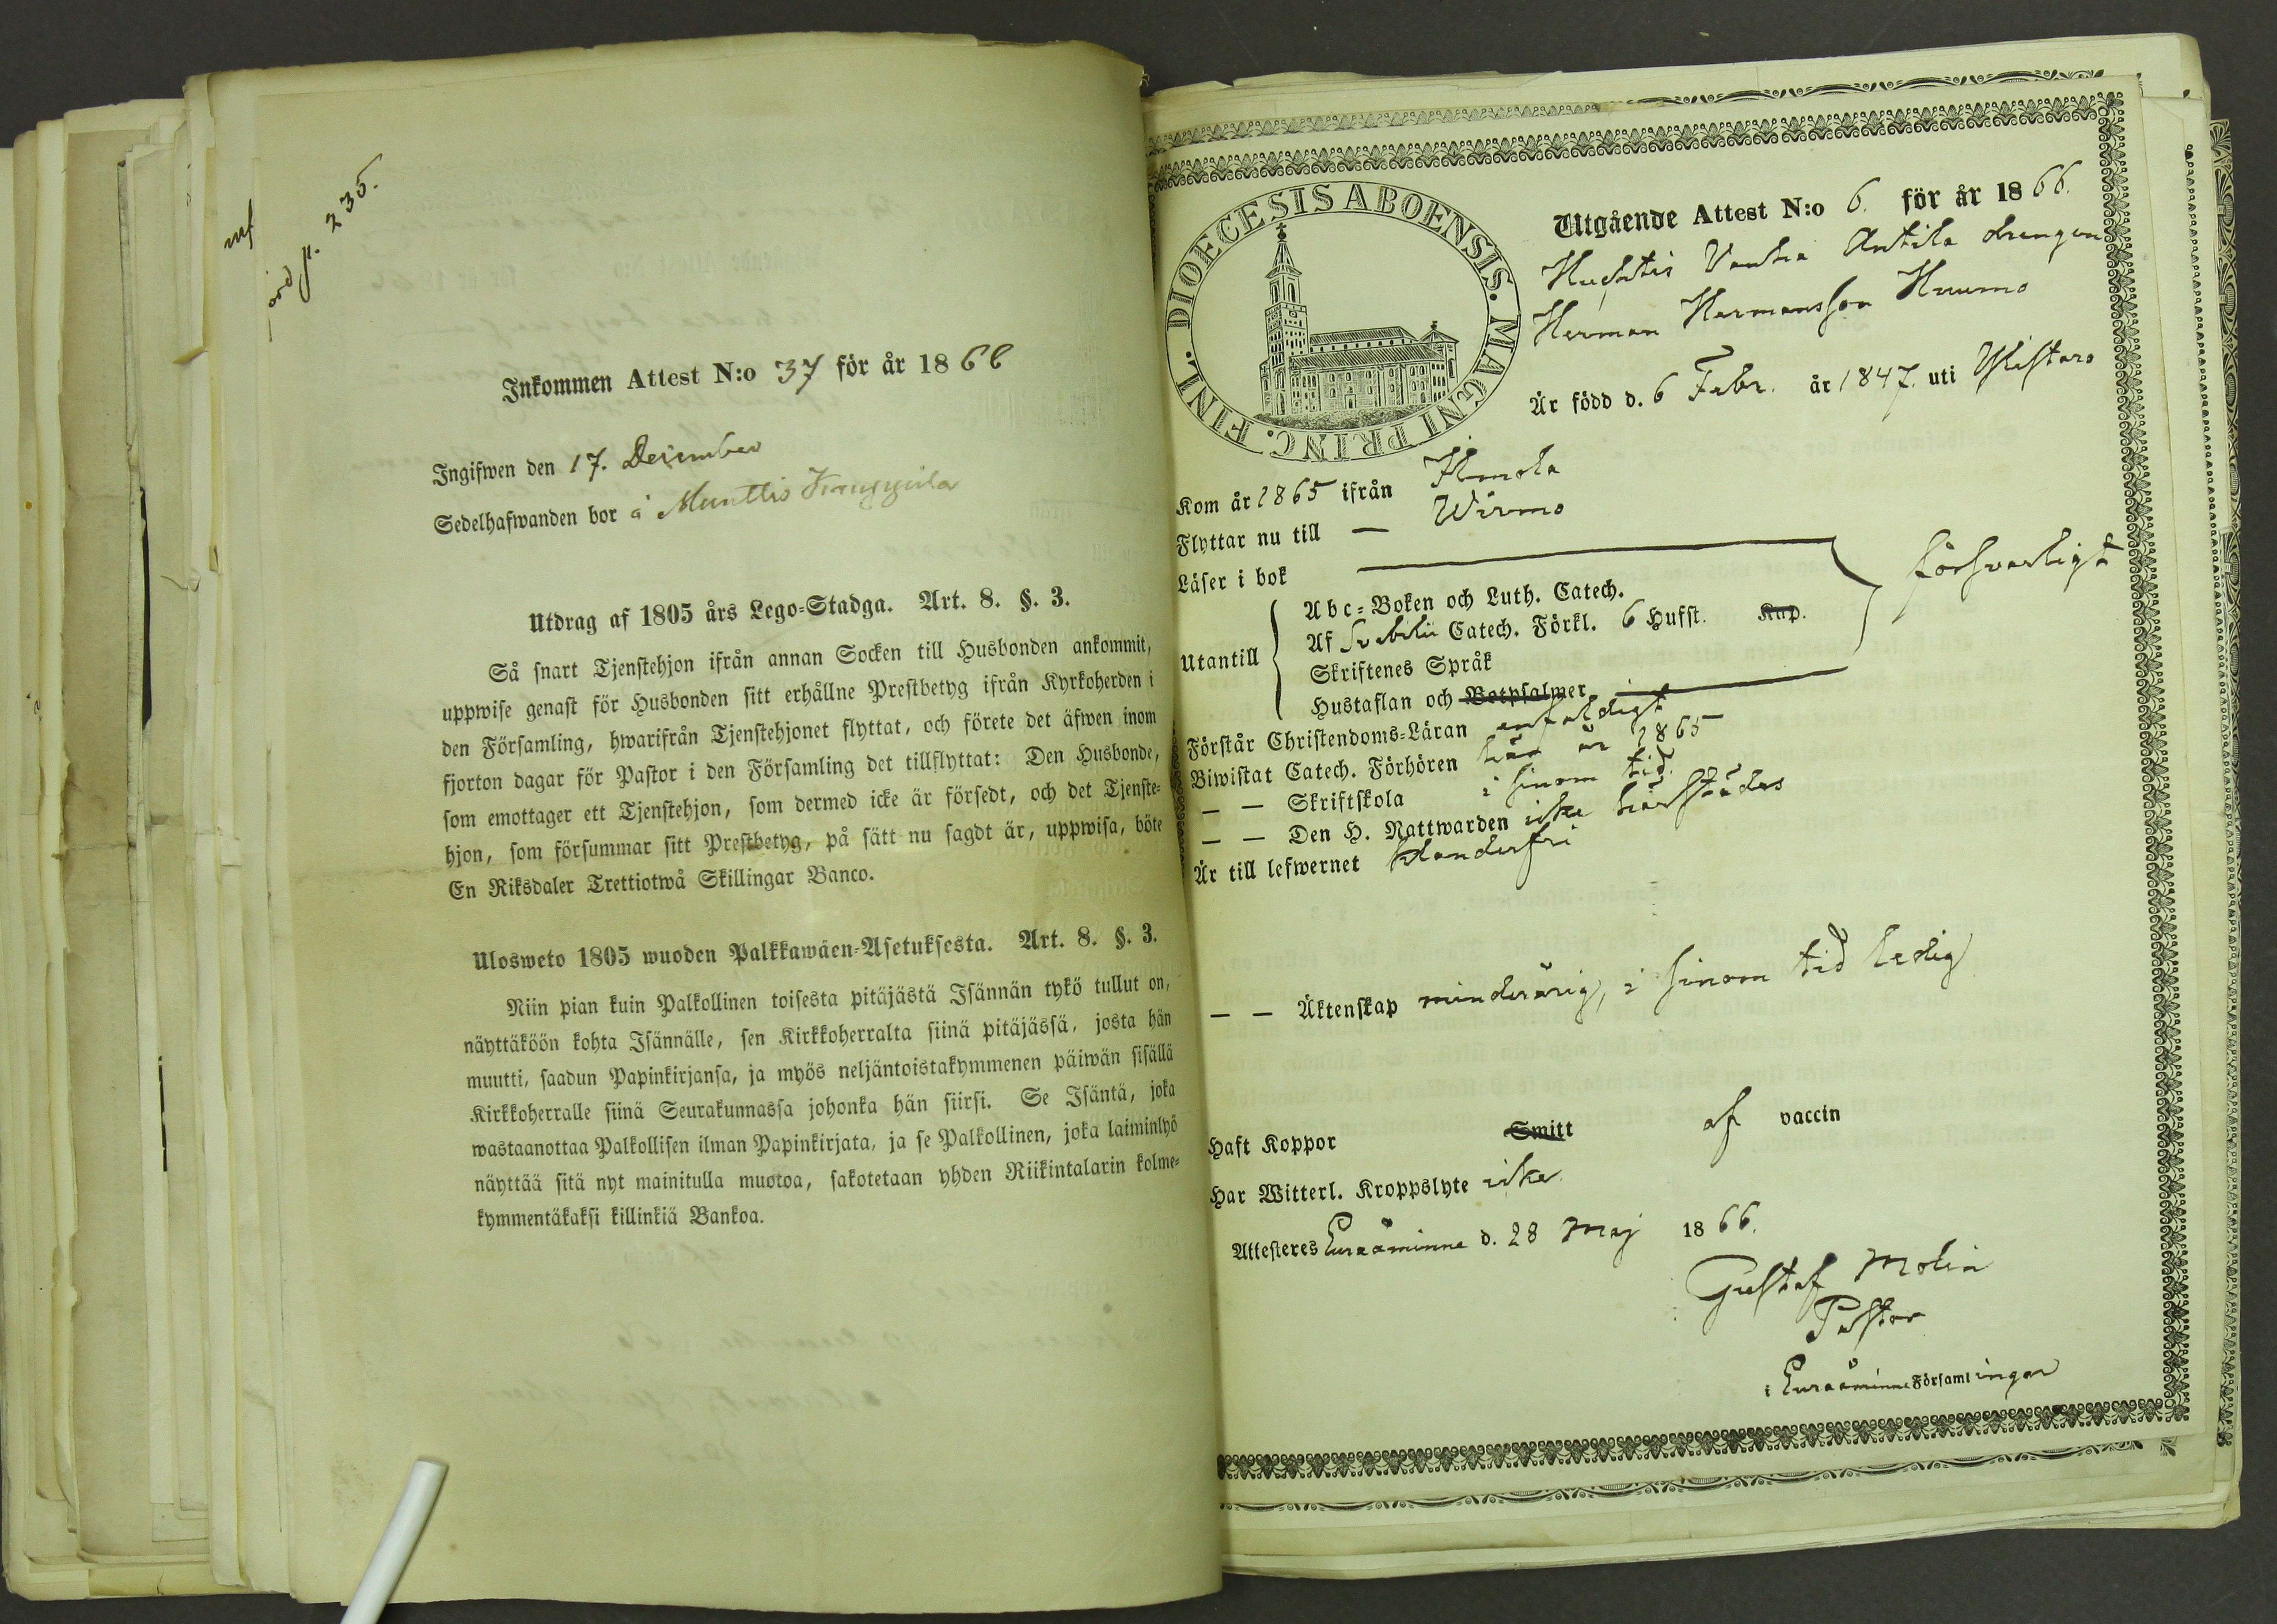 mf
införd p. 235.
Inkommen Attest N:o 37 för år 1866
Ingifwen den 17. December
Sedelhafwanden bor å Munttis
Utdrag af 1805 års Lego-Stadga. Art. 8. §. 3.
Så snart Tjenstehjon ifrån annan Socken till Husbonden ankommit,
uppwise genast för Husbonden sitt erhållne Prestbetyg ifrån Kyrkoherden i
den Församling, hwarifrån Tjenstehjonet flyttat, och förete det äfwen inom
fjorton dagar för Pastor i den Församling det tillflyttat: Den Husbonde,
som emottager ett Tjenstehjon, som dermed icke är försedt, och det Tjenste-
hjon, som försummar sitt Prestbetyg, på sätt nu sagdt är, uppwisa, böte
En Riksdaler Trettiotwå Skillingar Banco.
Ulosweto 1805 wuoden Palkkawäen-Asetuksesta. Art. 8. §. 3.
Niin pian kuin Palkollinen toisesta pitäjästä Isännän tykö tullut on,
näyttäköön kohta Isännälle, sen Kirkkoherralta siinä pitäjässä, josta hän
muutti, saadun Papinkirjansa, ja myös neljäntoistakymmenen päiwän sisällä
Kirkkoherralle siinä Seurakunnassa johonka hän siirsi. Se Isäntä, joka
wastaanottaa Palkollisen ilman Papinkirjata, ja se Palkollinen, joka laiminlyö
näyttää sitä nyt mainitulla muotoa, sakotetaan yhden Riikintalarin kolme-
kymmentäkaksi killinkiä Bankoa.
DIOECESIS ABOENSIS. MAGNI PRINC. FINL.
Utgående Attest N:o 6. för år 1866.
Huchtis Vanha Antila drengen
Herman Hermansson Huumo
Är född d. 6 Febr. år 1847. uti
Kom år 1865 ifrån Ilmola
Flyttar nu till — Wirmo
Läser i bok
försvarligt
Utantill
Abc-Boken och Luth. Catech.
Af Svebilii Catech. Förkl. 6 Hufst. Kap.
Skriftenes Språk
Hustaflan och Botpsalmer
Förstår Christendoms-Läran enfaldigt
Biwistat Catech. Förhören här år 1865
— — Skriftskola i sinom tid.
— — Den H. Nattwarden icke härstädes
Är till lefwernet klanderfri
— — Äktenskap minderårig, i sinom tid ledig
Haft Koppor Smitt af vaccin
Har Witterl. Kroppslyte icke
Attesteres Euraåminne d. 28 Maj 1866.
Gustaf Molin
Pastor
i Euraåminne Församlingar